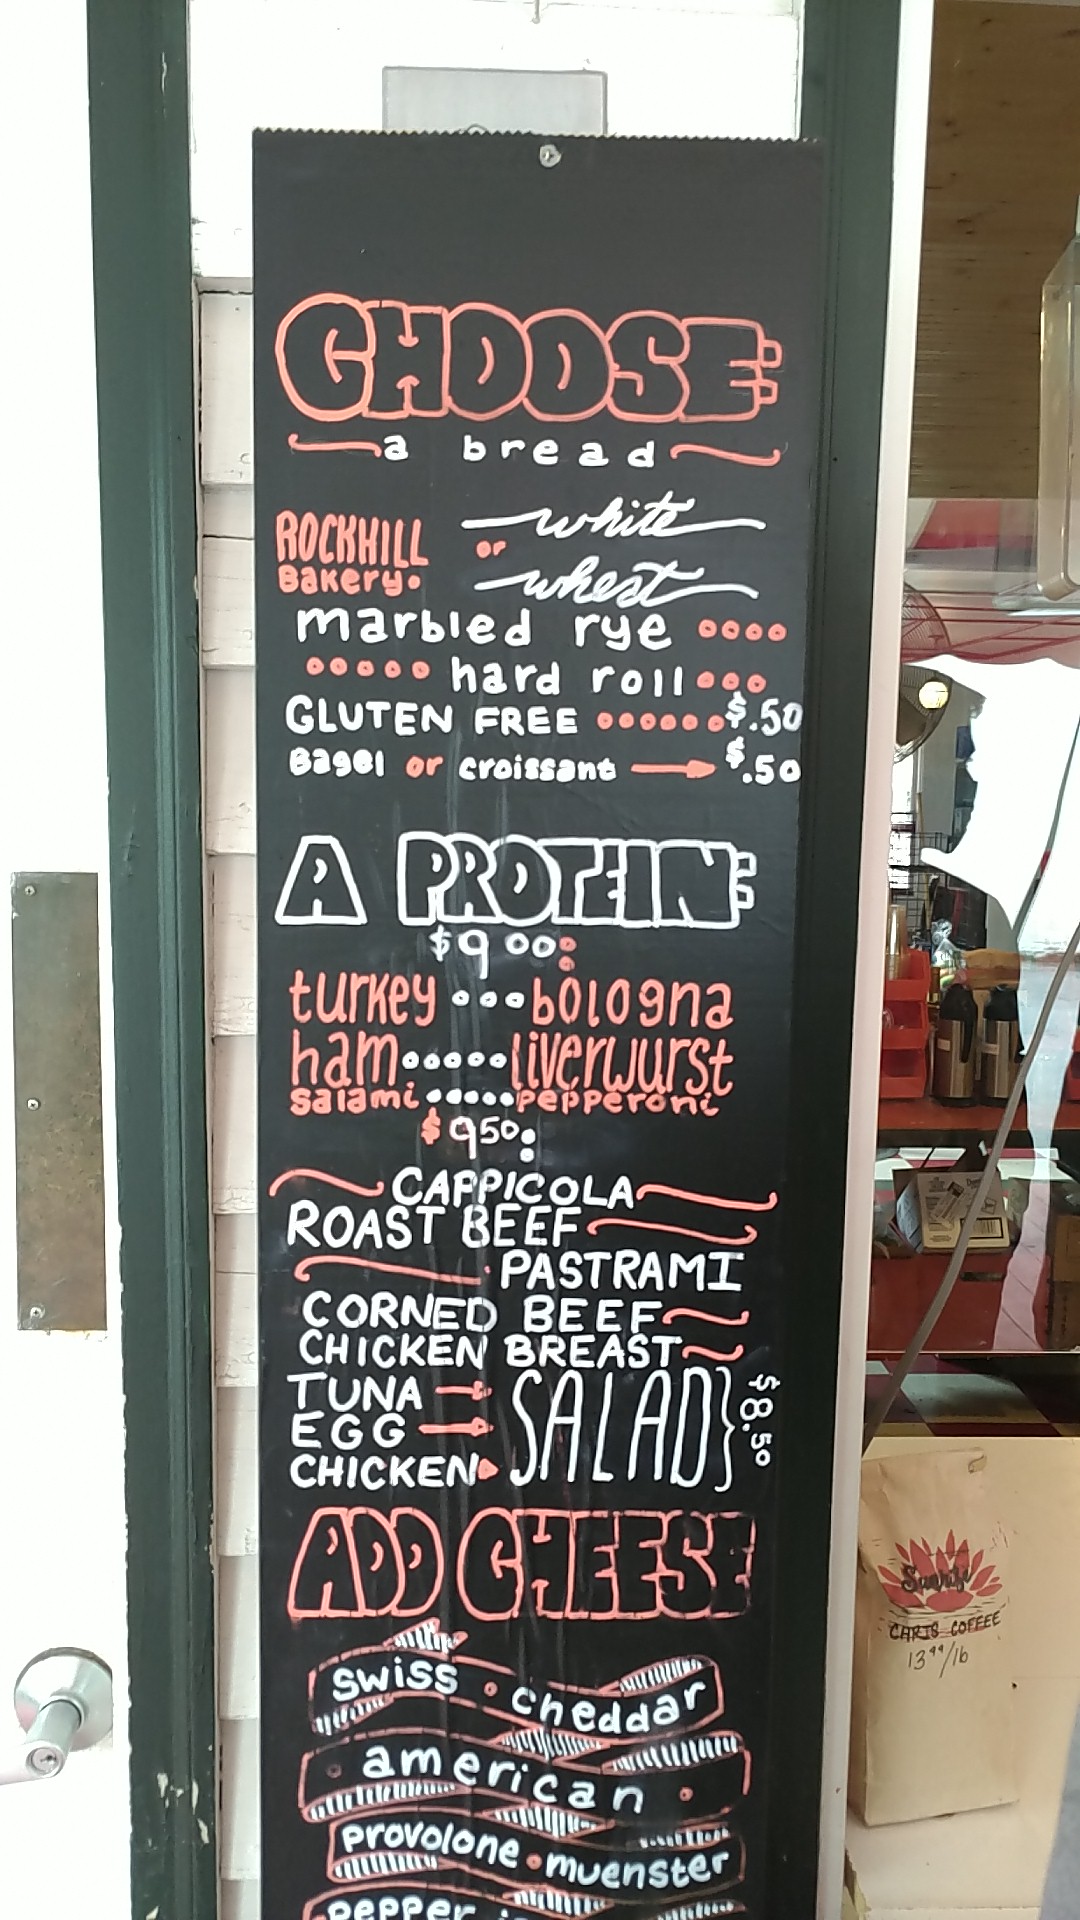 CHOOSE:
a bread
ROCKHILL Bakery.
white
or
wheat
marbled rye
hard roll
GLUTEN FREE $.50
Bagel or croissant $.50
A PROTEIN:
$9.00:
turkey bologna
ham liverwurst
salami pepperoni
$9.50:
CAPPICOLA
ROAST BEEF
PASTRAMI
CORNED BEEF
CHICKEN BREAST
TUNA
EGG
CHICKEN
SALAD} $8.50
ADD CHEESE
swiss • cheddar
american
provolone • muenster
pepper
Sunrise
CHRIS COFFEE
13.99/lb